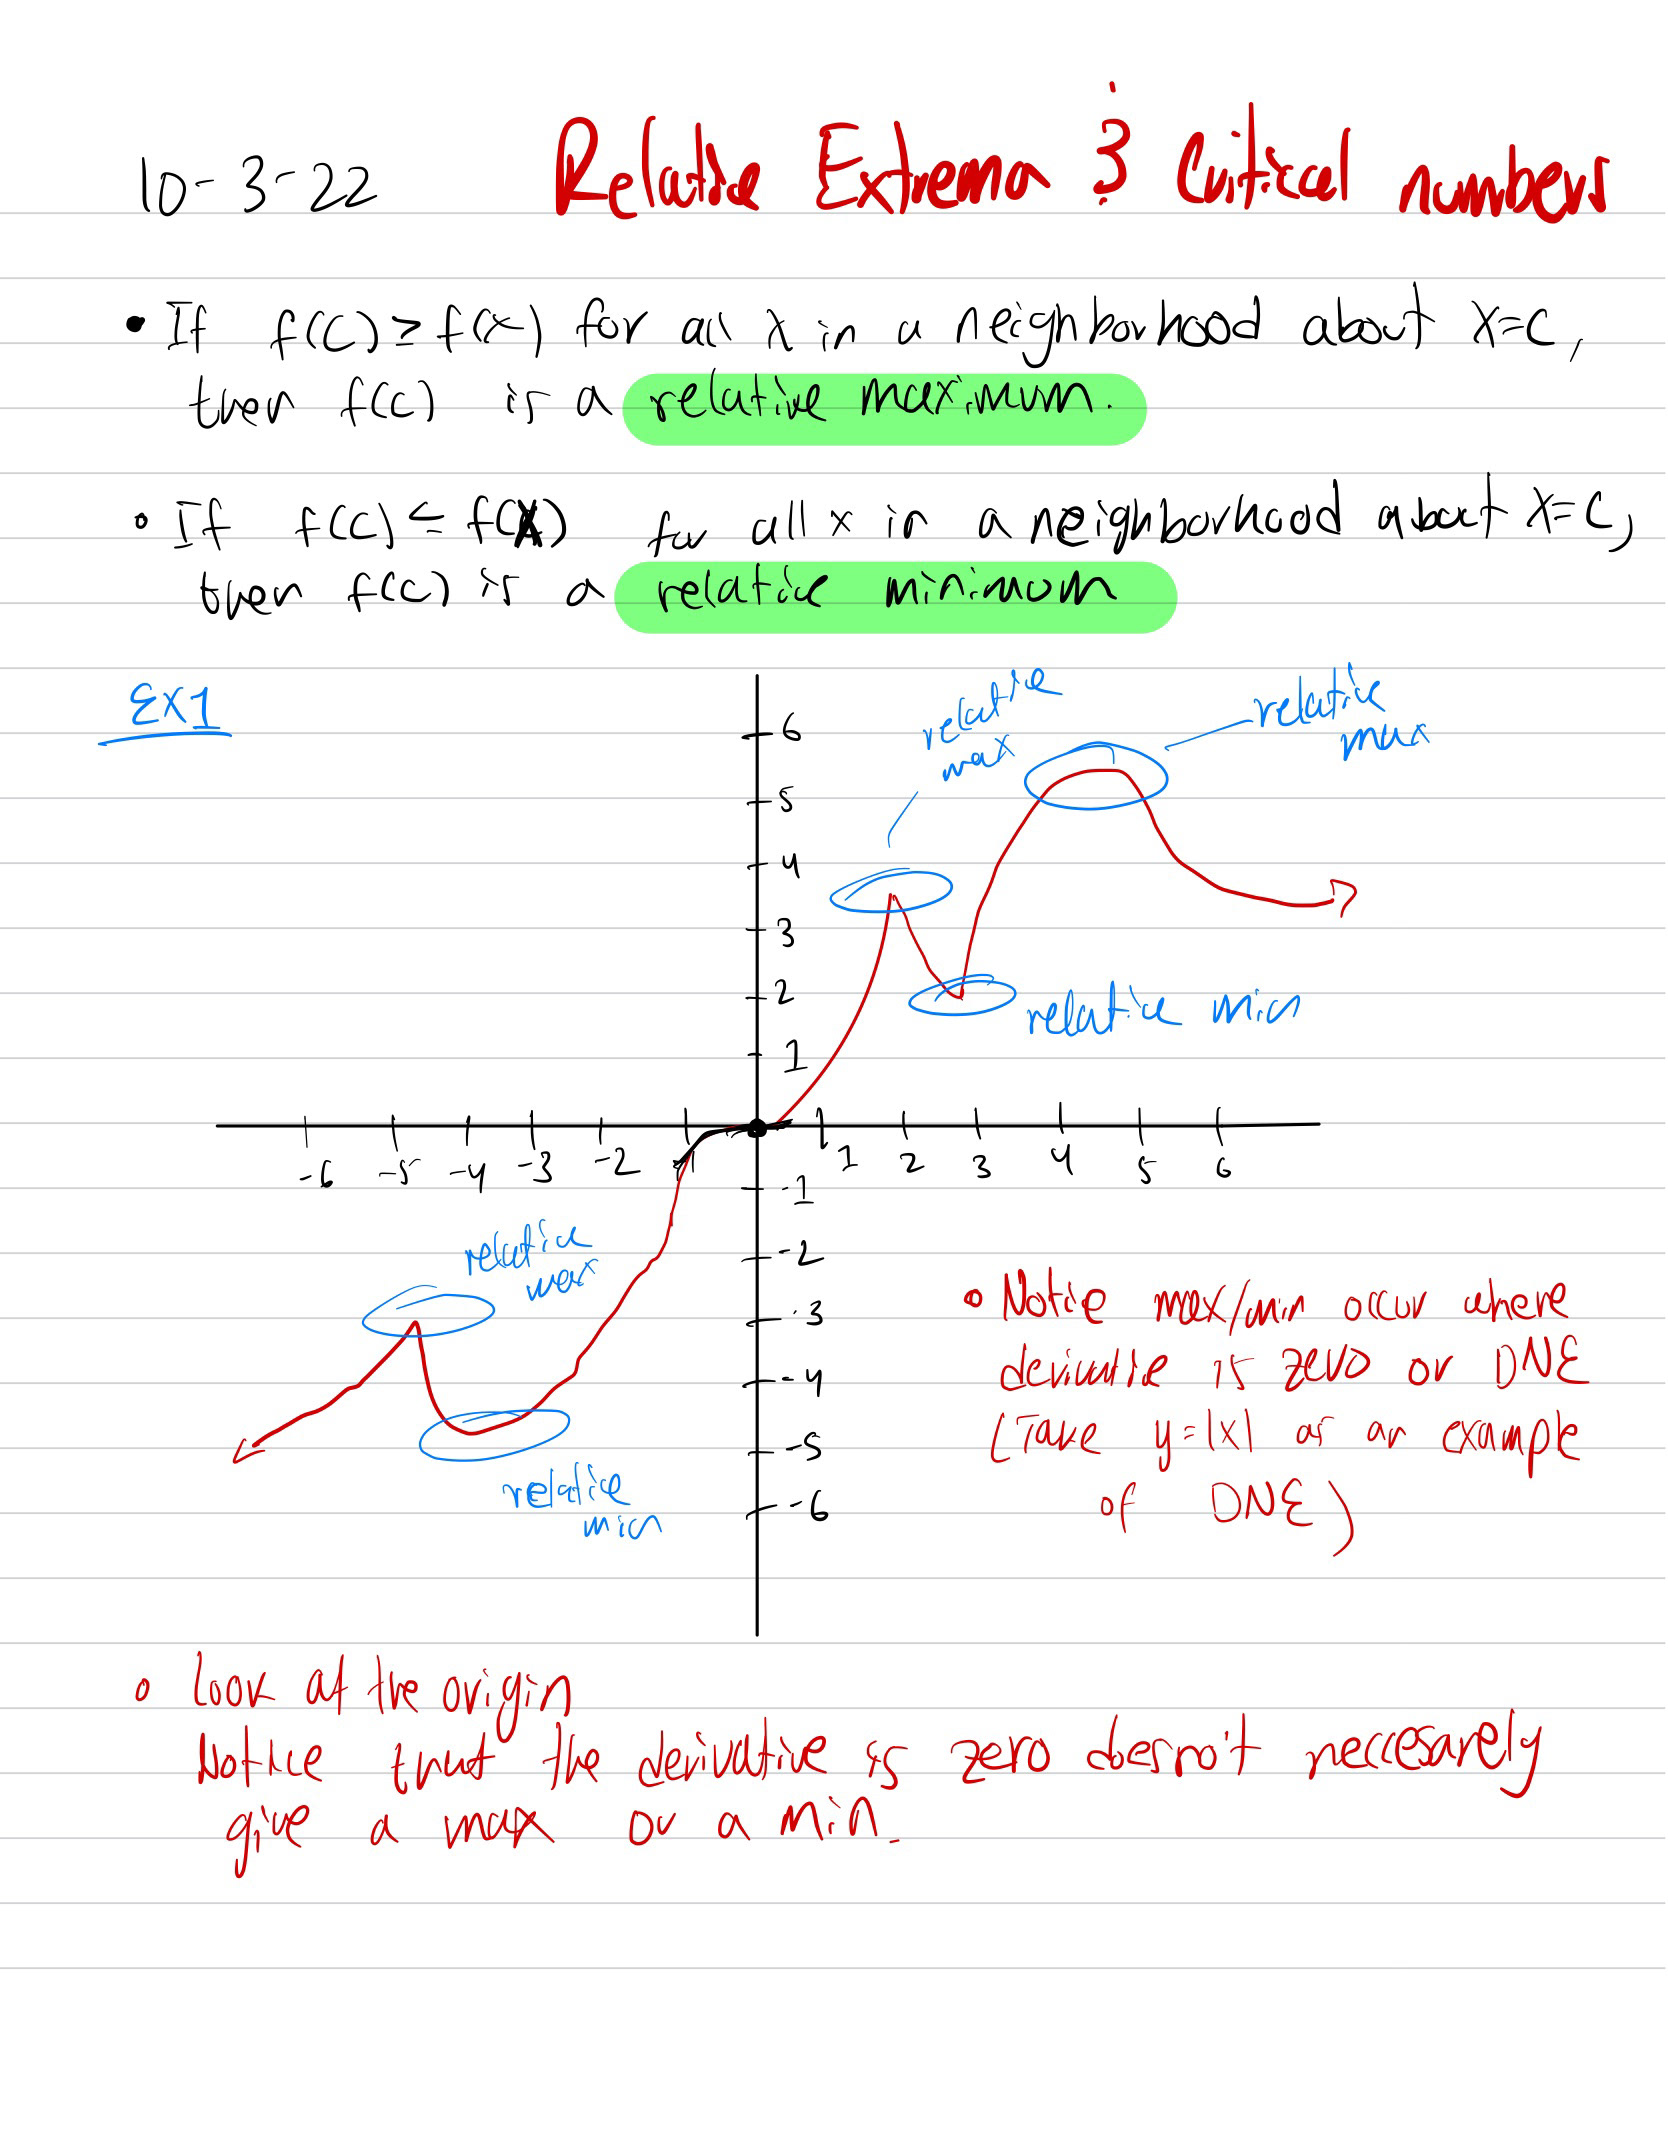 10-3-22 Relative Extrema & Critical numbers
• If f(c) ≥ f(x) for all x in a neighborhood about x=c,
then f(c) is a relative maximum.
• If f(c) ≤ f(x) for all x in a neighborhood about x=c,
then f(c) is a relative minimum
EX1
relative
max
relative
max
6
5
4
3
2
1
relative min
-6 -5 -4 -3 -2 -1 1 2 3 4 5 6
-1
-2
-3
-4
-5
-6
relative
max
relative
min
• Notice max/min occur where
derivative is zero or DNE
(Take y=|x| as an example
of DNE)
• Look at the origin
Notice that the derivative is zero doesn't neccesarely
give a max or a min.